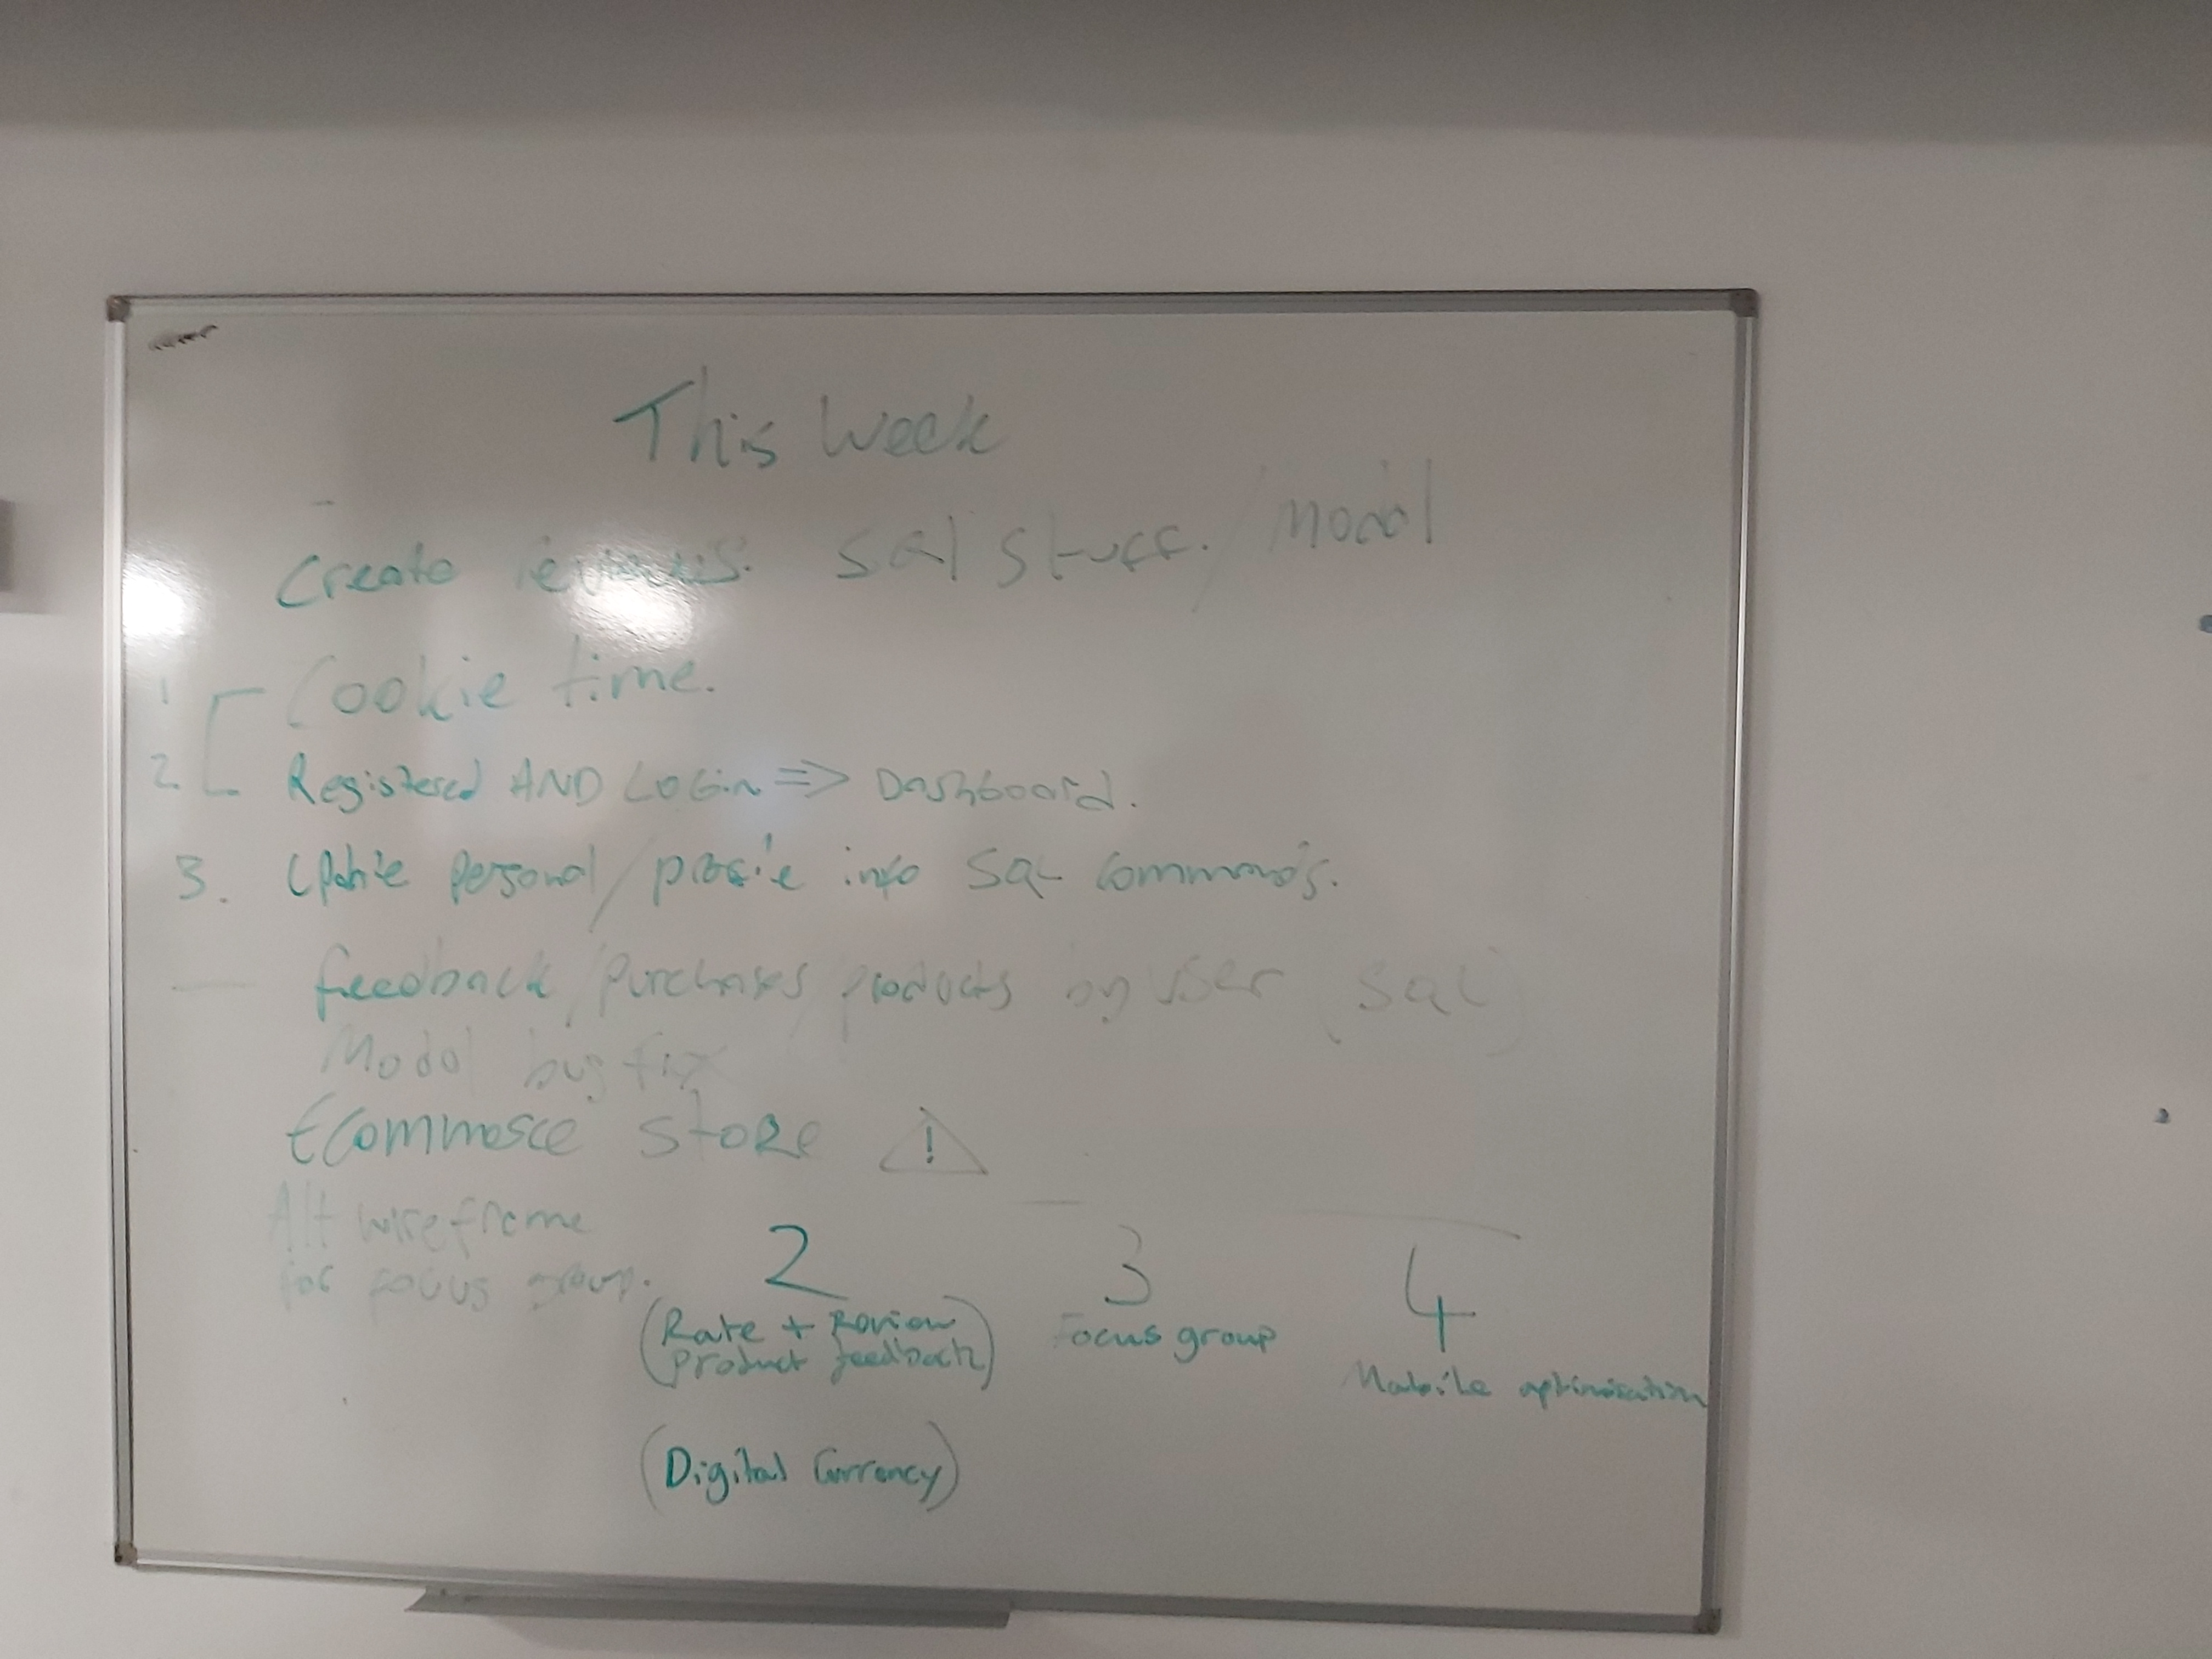 This Week
Create reviews. SQL Stuff. / Modal
1 Cookie time.
2. Registered AND LOGin => Dashboard.
3. Update personal / profile info SQL Commands.
— feedback / purchases / products by user (SQL)
Modal bug fix
Ecommerce store !
Alt wireframe
for focus group.
2 3 4
(Rate + Review
product feedback)
Focus group
Mobile optimisation
(Digital Currency)